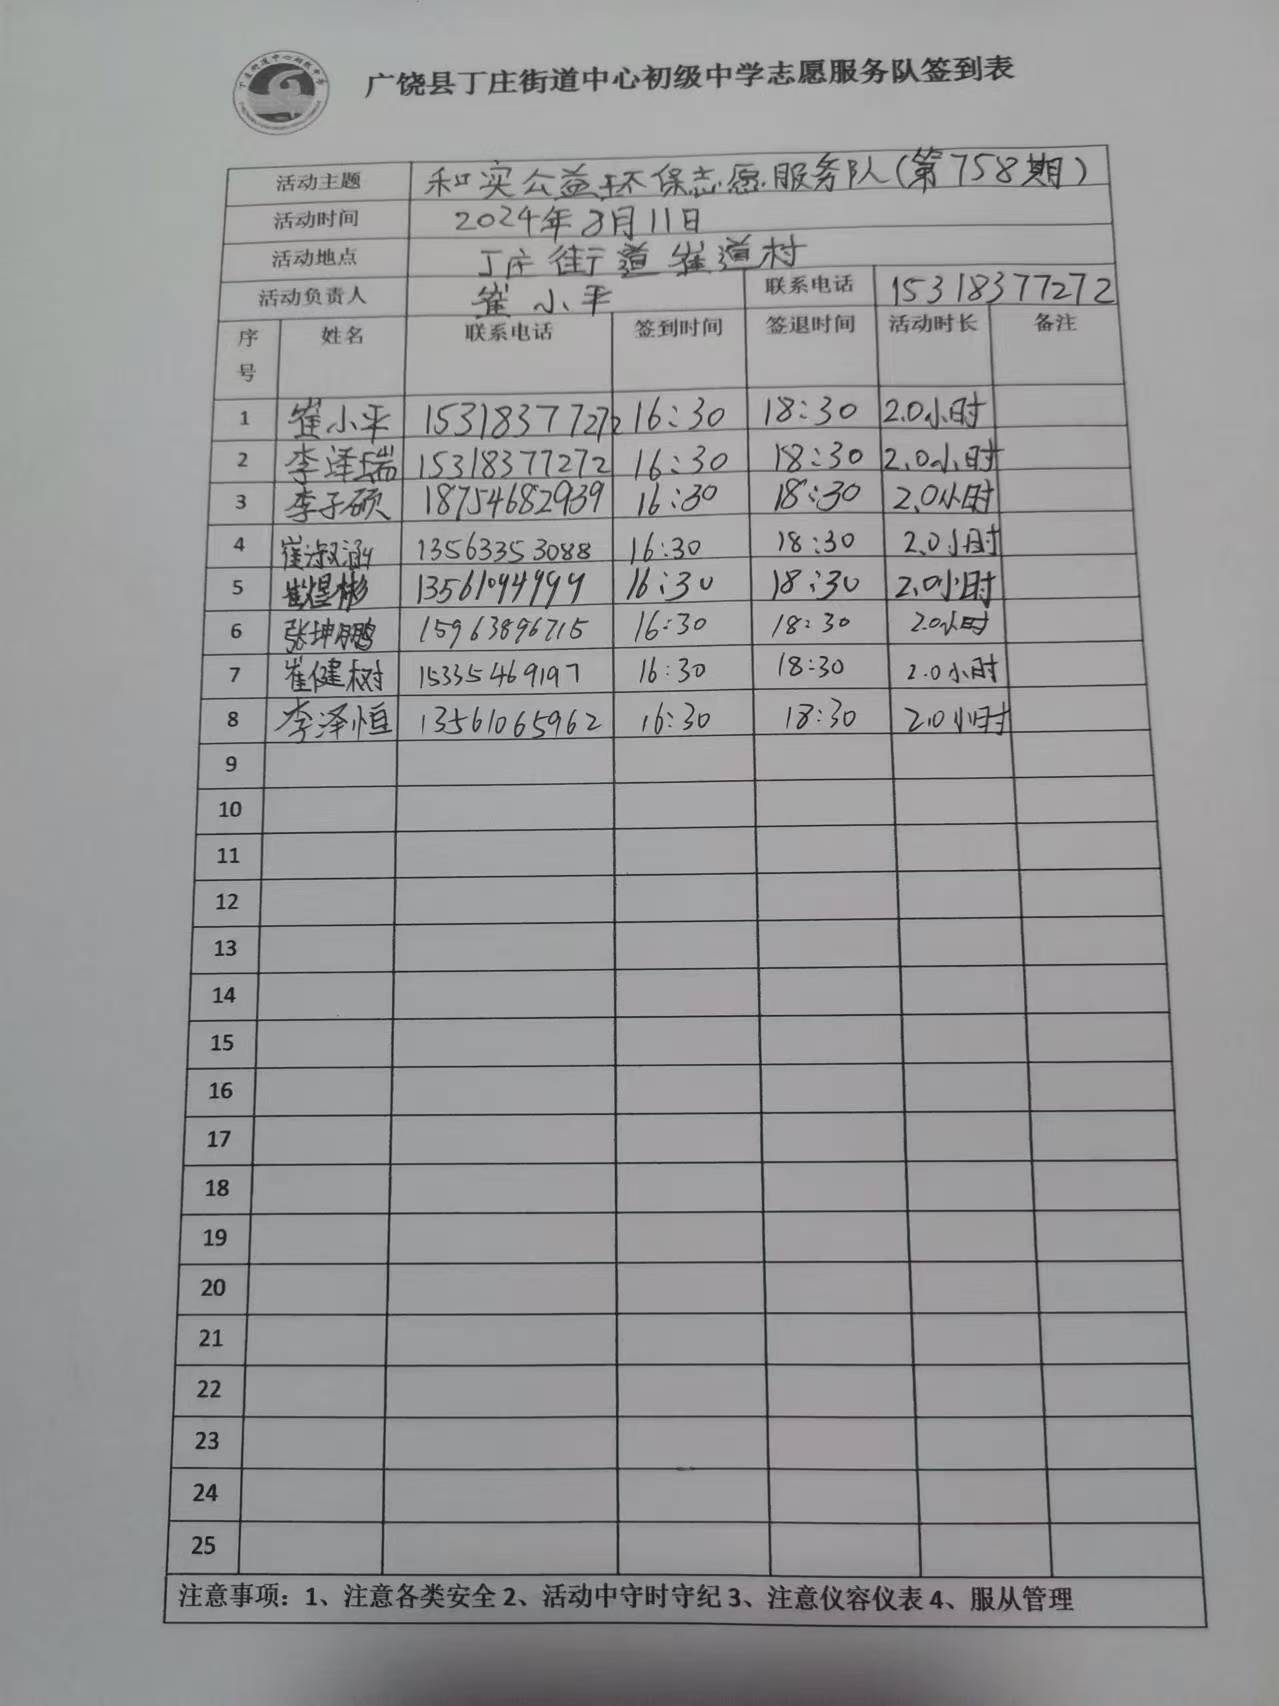 广饶县丁庄街道中心初级中学志愿服务队签到表
活动主题 和实公益环保志愿服务队(第758期)
活动时间 2024年8月11日
活动地点 丁庄街道崔道村
活动负责人 崔小平 联系电话 15318377272
序号 姓名 联系电话 签到时间 签退时间 活动时长 备注
1 崔小平 15318377272 16:30 18:30 2.0小时
2 李泽瑞 15318377272 16:30 18:30 2.0小时
3 李子硕 18754682939 16:30 18:30 2.0小时
4 崔淑涵 13563353088 16:30 18:30 2.0小时
5 崔煜彬 13561094999 16:30 18:30 2.0小时
6 张坤鹏 15963896715 16:30 18:30 2.0小时
7 崔健树 15335469197 16:30 18:30 2.0小时
8 李泽恒 13561065962 16:30 18:30 2.0小时
9
10
11
12
13
14
15
16
17
18
19
20
21
22
23
24
25
注意事项：1、注意各类安全 2、活动中守时守纪 3、注意仪容仪表 4、服从管理